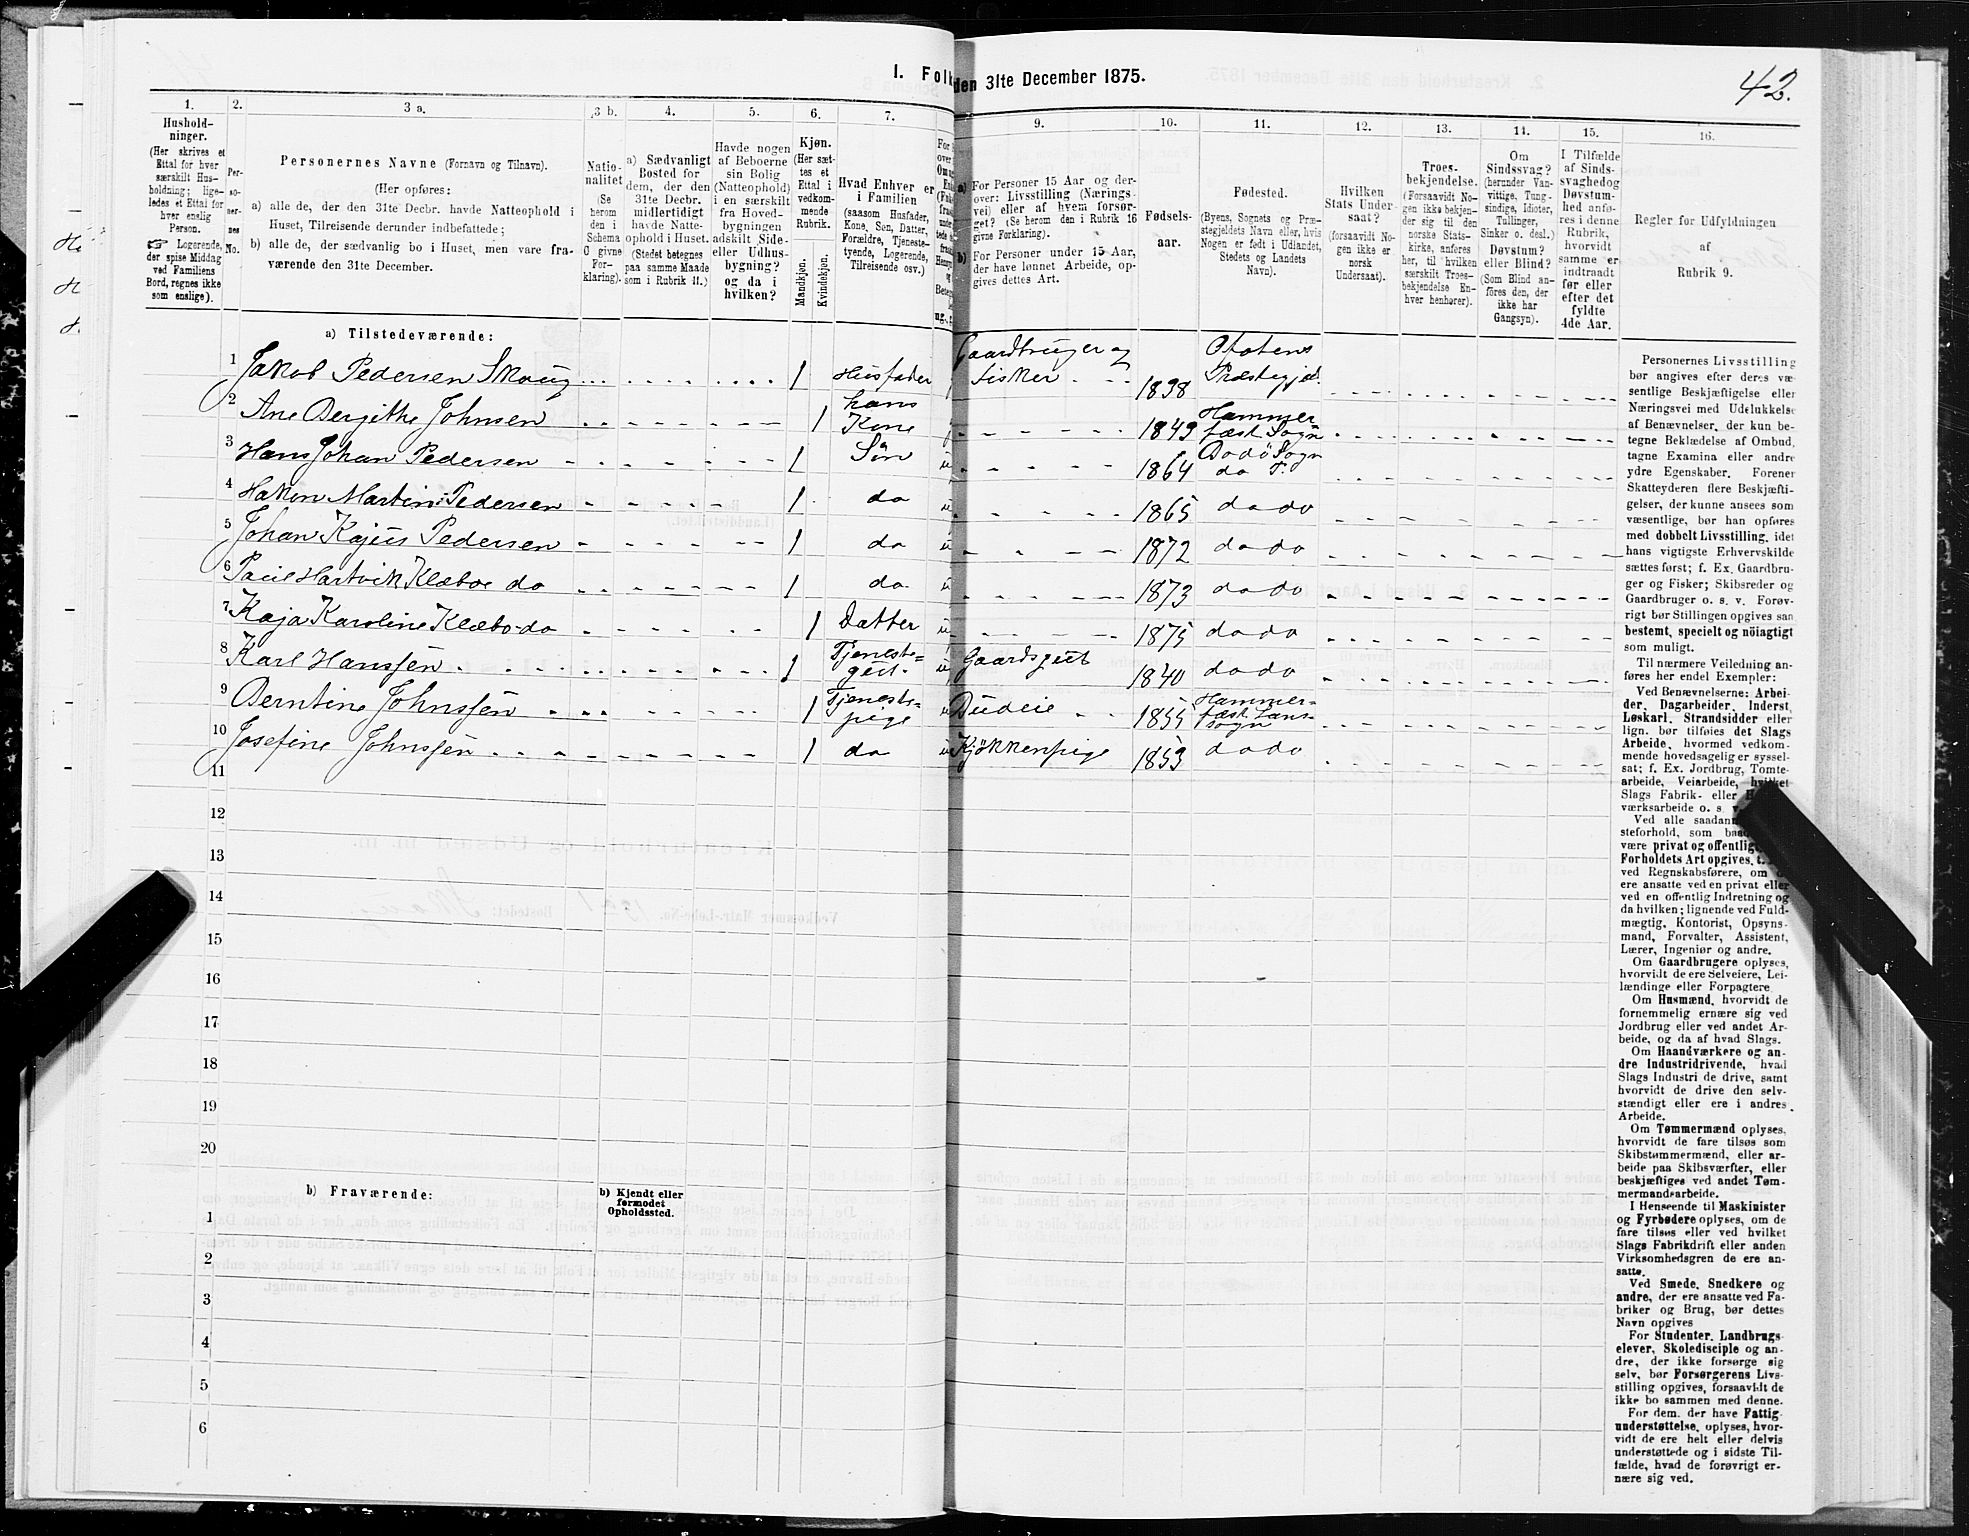 I. Folk den 31te December 1875.
42.
1. 2. 3 a. 3 b. 4. 5. 6. 7. 9. 10. 11. 12. 13. 14. 15. 16.
Hushold-
ninger.
(Her skrives et
Ettal for hver
særskilt Hus-
holdning; lige-
ledes et Ettal for
hver enslig
Person.
Logerende,
der spise Middag
ved Familiens
Bord, regnes ikke
som enslige).
Per-
so-
ner-
nes
No.
Personernes Navne (Fornavn og Tilnavn).
(Her opføres:
a) alle de, der den 31te Decbr. havde Natteophold i
Huset, Tilreisende derunder indbefattede;
b) alle de, der sædvanlig bo i Huset, men vare fra-
værende den 31te December.
Natio-
nalitet
(Se
herom
den i
Schema
6 givne
For-
klaring).
a) Sædvanligt
Bosted for
dem, der den
31te Decbr.
midlertidigt
havde Natte-
ophold i Huset.
(Stedet betegnes
paa samme Maade
som i Rubrik 11.)
Havde nogen
af Beboerne
sin Bolig
(Natteophold)
i en særskilt
fra Hoved-
bygningen
adskilt Side-
eller Udhus-
bygning?
og da i
hvilken?
Kjøn.
(Her sæt-
tes et
Ettal i
vedkom-
mende
Rubrik.
Mandkjøn.
Kvindekjøn.
Hvad Enhver er
i Familien
(saasom Husfader,
Kone, Søn, Datter,
Forældre, Tjeneste-
tyende, Logerende,
Tilreisende osv.)
a) For Personer 15 Aar og der-
over: Livsstilling (Nærings-
vei) eller af hvem forsør-
get? (Se herom den i Rubrik 16
givne Forklaring).
b) For Personer under 15 Aar,
der have lønnet Arbeide, op-
gives dettes Art.
Fødsels-
aar.
Fødested.
(Byens, Sognets og Præ-
stegjeldets Navn eller, hvis
Nogen er født i Udlandet,
Stedets og Landets
Navn).
Hvilken
Stats Under-
saat?
(forsaavidt No-
gen ikke er
norsk
Undersaat).
Troes-
bekjendelse.
(Forsaavidt No-
gen ikke bekjen-
der sig til den
norske Stats-
kirke, anføres
her, til hvilken
særskilt Troes-
bekjendelse En-
hver henhører).
Om
Sindssvag?
(herunder Van-
vittige, Tung-
sindige, Idioter,
Tullinger,
Sinker o. desl.)
Døvstum?
eller Blind?
(Som Blind an-
føres den, der
ikke har
Gangsyn).
I Tilfælde
af Sinds-
svaghed og
Døvstum-
hed anfø-
res i denne
Rubrik,
hvorvidt
samme er
indtraadt
før eller
efter det
fyldte
4de Aar.
Regler for Udfyldningen
af
Rubrik 9.
a) Tilstedeværende:
1 Jakob Pedersen Skoug 1 Husfader Gaardbruger og Fisker 1838 Ofotens Præstegjd.
2 Ane Bergithe Johnsen 1 hans Kone 1849 Hammerfest Sogn
3 Hans Johan Pedersen 1 Sön u 1864 Bodö Sogn do P.
4 Hakon Martin Pedersen 1 do u 1865 do do
5 Johan Kajus Pedersen 1 do u 1872 do do
6 Paul Hartvik Klæboe do 1 do u 1873 do do
7 Kaja Karoline Klæbo do 1 Datter u 1875 do do
8 Karl Hanssen 1 Tjeneste-gut u Gaardsgut 1840 do do
9 Berntine Johnssen 1 Tjeneste-pige u Budeie 1855 Hammer-fest Lans-sogn
10 Josefine Johnssen 1 do u Kjökkenpige 1853 do do
11
12
13
14
15
16
17
18
19
20
b) Fraværende:
b) Kjendt eller
formodet
Opholdssted.
1
2
3
4
5
6
Personernes Livsstilling
bør angives efter deres væ-
sentlige Beskjæftigelse eller
Næringsvei med Udelukkelse
af Benævnelser, der kun be-
tegne Beklædelse af Ombud,
tagne Examina eller andre
ydre Egenskaber. Forener
Skatteyderen flere Beskjæfti-
gelser, der kunne ansees som
væsentlige, bør han opføres
med dobbelt Livsstilling, idet
hans vigtigste Erhvervskilde
sættes først; f. Ex. Gaardbru-
ger og Fisker; Skibsreder og
Gaardbruger o. s. v. Forøv-
rigt bør Stillingen opgives saa
bestemt, specielt og nöiagtigt
som muligt.
Til nærmere Veiledning an-
føres her endel Exempler:
Ved Benævnelserne: Arbei-
der, Dagarbeider, Inderst,
Løskarl, Strandsidder eller
lign. bør tilføies det Slags
Arbeide, hvormed vedkom-
mende hovedsagelig er syssel-
sat; f. Ex. Jordbrug, Tomte-
arbeide, Veiarbeide, hvilket
Slags Fabrik- eller
værksarbeide o. s.
Ved alle saadann
steforhold, som baa
være privat og offentlig
Forholdets Art opgives,
ved Regnskabsførere, om
ere ansatte ved en privat eller
ved en offentlig Indretning og
da hvilken; lignende ved Fuld-
mægtig, Kontorist, Opsyns-
mand, Forvalter, Assistent,
Lærer, Ingeniør og andre.
Om Gaardbrugere oplyses,
hvorvidt de ere Selveiere, Lei-
lændinge eller Forpagtere.
Om Husmænd, hvorvidt de
fornemmelig ernære sig ved
Jordbrug eller ved andet Ar-
beide, og da af hvad Slags.
Om Haandværkere og an-
dre Industridrivende, hvad
Slags Industri de drive, samt
hvorvidt de drive den selv-
stændigt eller ere i andres
Arbeide.
Om Tømmermænd oplyses,
hvorvidt de fare tilsøs som
Skibstømmermænd, eller ar-
beide paa Skibsværfter, eller
beskjæftiges ved andet Tøm-
mermandsarbeide.
I Henseende til Maskinister
og Fyrbødere oplyses, om de
fare tilsøs eller ved hvilket
Slags Fabrikdrift eller anden
Virksomhedsgren de ere an-
satte.
Ved Smede, Snedkere og
andre, der ere ansatte ved Fa-
briker og Brug, bør dettes
Navn opgives
For Studenter, Landbrugs-
elever, Skoledisciple og an-
dre, der ikke forsørge sig
selv, bør Forsørgerens Livs-
stilling opgives, forsaavidt de
ikke bo sammen med denne.
For dem, der have Fattig-
understøttelse, oplyses, hvor-
vidt de ere helt eller delvis
understøttede og i sidste Til-
fælde, hvad de forøvrigt er-
nære sig ved.